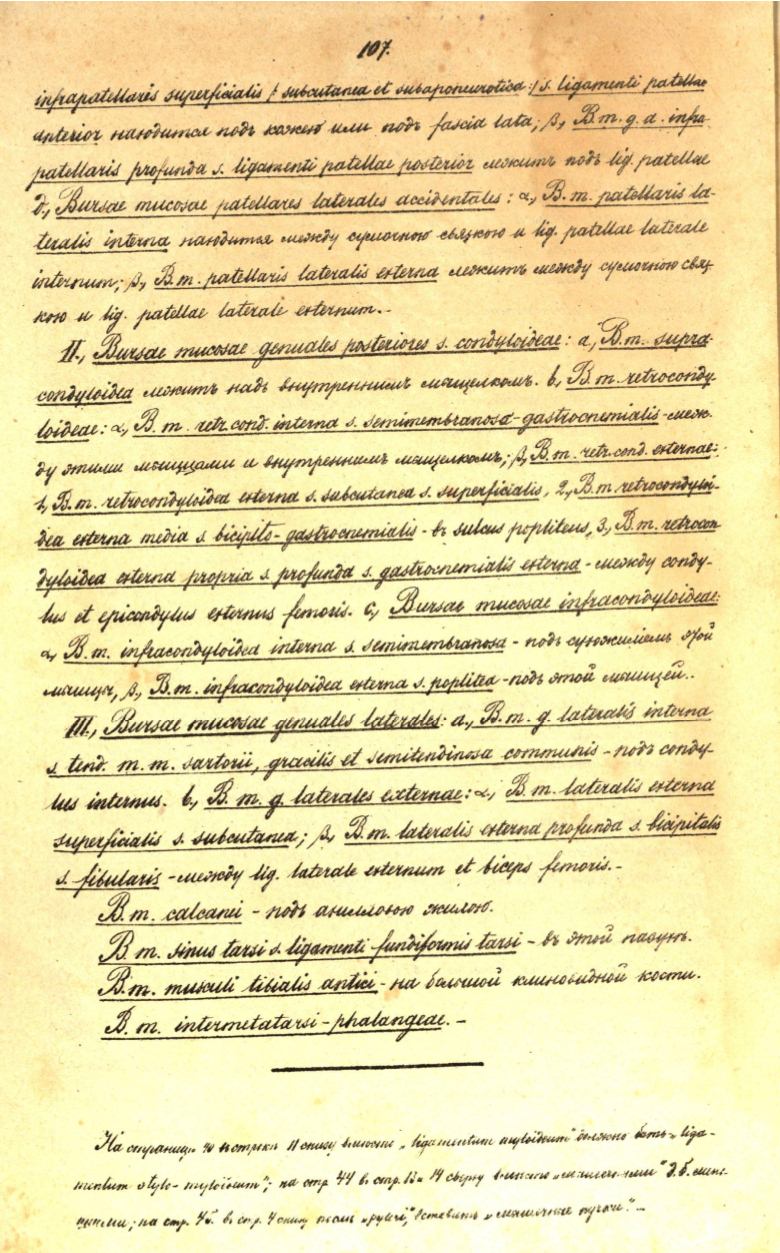 107.
infrapatellaris superficialis /: subcutanea et subaponeurotica :/ s. ligamenti patellae
anterior находится подъ кожею или подъ fascia lata; β, B. m. g. a. infra-
patellaris profunda s. ligamenti patellae posterior лежитъ подъ lig. patellae
d., Bursae mucosae patellares laterales accidentales: α, B. m. patellaris la-
teralis interna находится между сумочною связкою и lig. patellae laterale
internum; β, B. m. patellaris lateralis externa лежитъ между сумочною свяс-
кою и lig. patellae laterale externum.-
II., Bursae mucosae genuales posteriores s. condyloideae: a, B. m. supra-
condyloidea лежитъ надъ внутреннимъ мыщелкомъ. b, B. m. retrocondy-
loideae: α, B. m. retr. cond. interna s. semimembranoso-gastrocnemialis - меж-
ду этими мышцами и внутреннимъ мыщелкомъ; β, B. m. retr. cond. externae:
1, B. m. retrocondyloidea externa s. subcutanea s. superficialis, 2, B. m. retrocondyloi-
dea externa media s. bicipito-gastrocnemialis - въ sulcus popliteus, 3, B. m. retrocon-
dyloidea externa propria s. profunda s. gastrocnemialis externa - между condy-
lus et epicondylus externus femoris. c, Bursae mucosae infracondyloideae:
α, B. m. infracondyloidea interna s. semimembranosa - подъ сухожиліемъ этой
мышцы, β, B. m. infracondyloidea externa s. poplitea - подъ этой мышцей..
III., Bursae mucosae genuales laterales: a, B. m. g. lateralis interna
s. tend. m. m. sartorii, gracilis et semitendinosa communis - подъ condy-
lus internus. b, B. m. g. laterales externae: α, B. m. lateralis externa
superficialis s. subcutanea; β, B. m. lateralis externa profunda s. bicipitalis
s. fibularis - между lig. laterale externum et biceps femoris.-
B. m. calcanei - подъ ахилловою жилою.
B. m. sinus tarsi s. ligamenti fundiformis tarsi - въ этой пазухѣ.
B. m. musculi tibialis antici - на большой клиновидной кости.
B. m. intermetatarsi-phalangeae. -
На страницѣ 40 въ строкѣ 11 снизу вмѣсто „ligamentum myloideum" должно быть „liga-
mentum stylo-myloideum"; на стр. 44 в стр. 13 и 14 сверху вмѣсто д. б.
на стр. 45 в стр. 4 снизу послѣ вставить „мышечные пучки". -